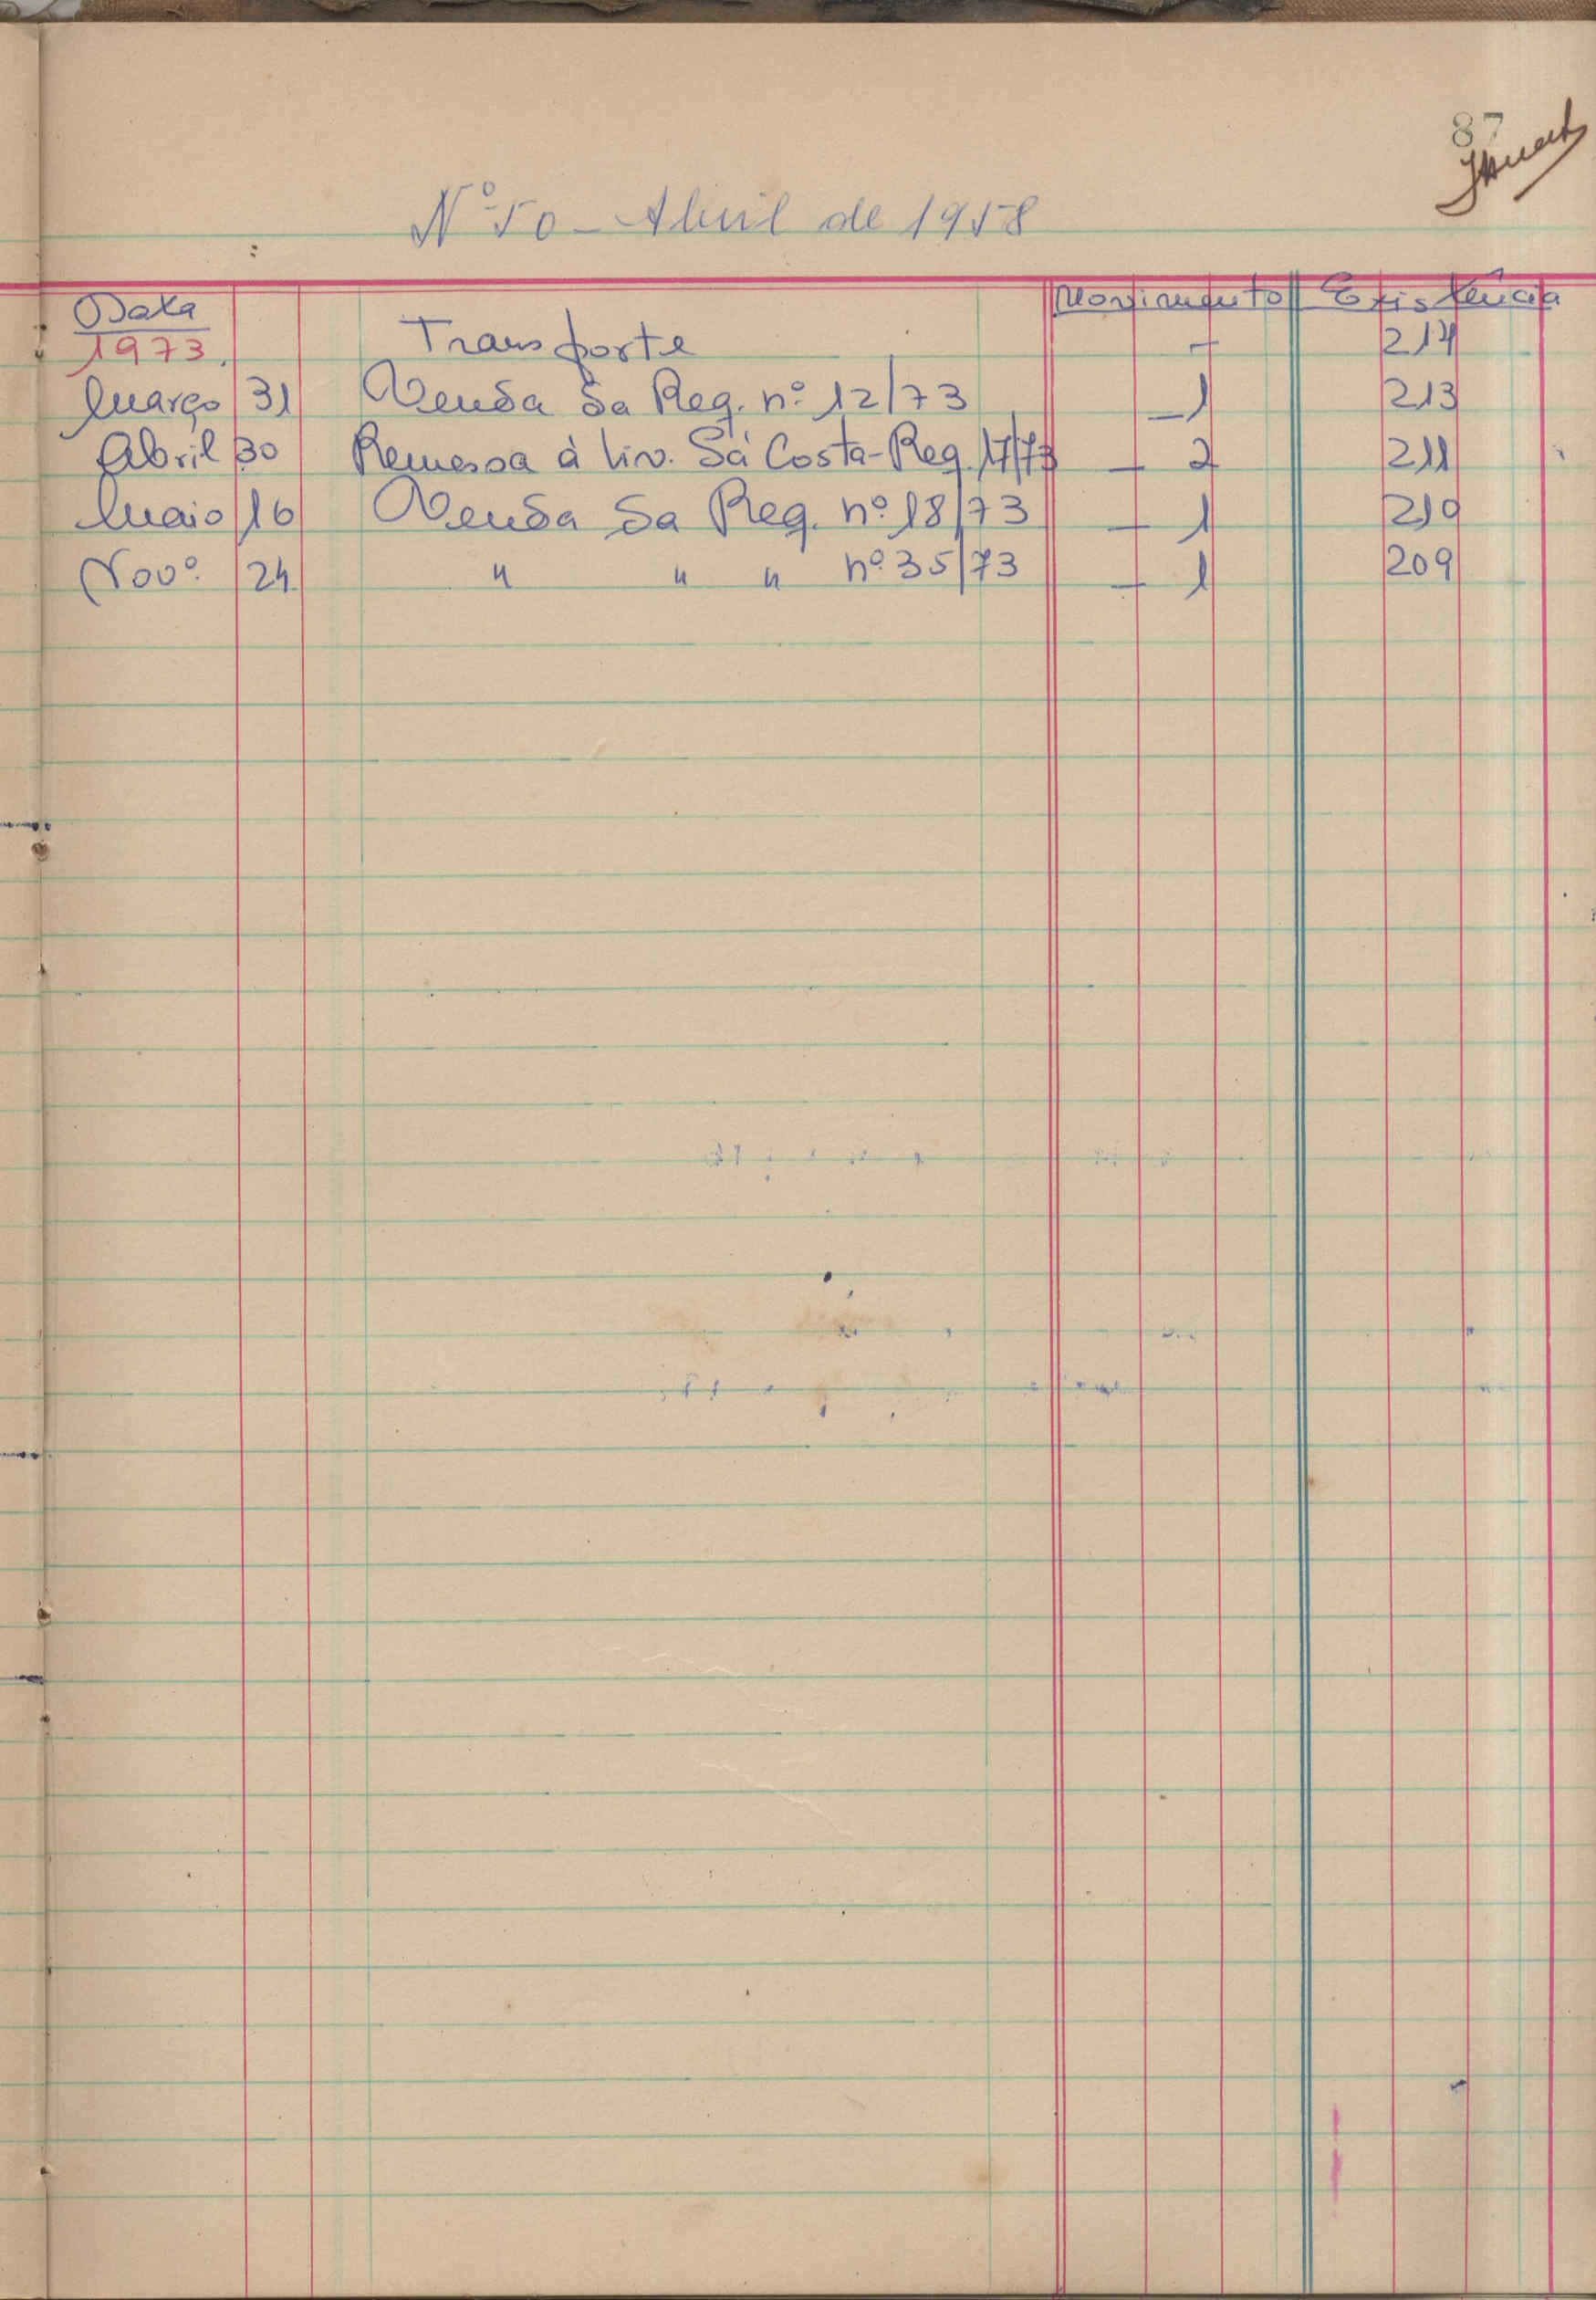 87
Nº 50 - Abril de 1958
Data Movimento Existência
1973. Transporte - 214
Março 31 Venda da Req. nº 12/73 - 1 213
Abril 30 Remessa à Liv. Sá Costa - Req. 17/73 - 2 211
Maio 16 Venda da Req. nº 18/73 - 1 210
Novº. 24 " " " nº 35/73 - 1 209